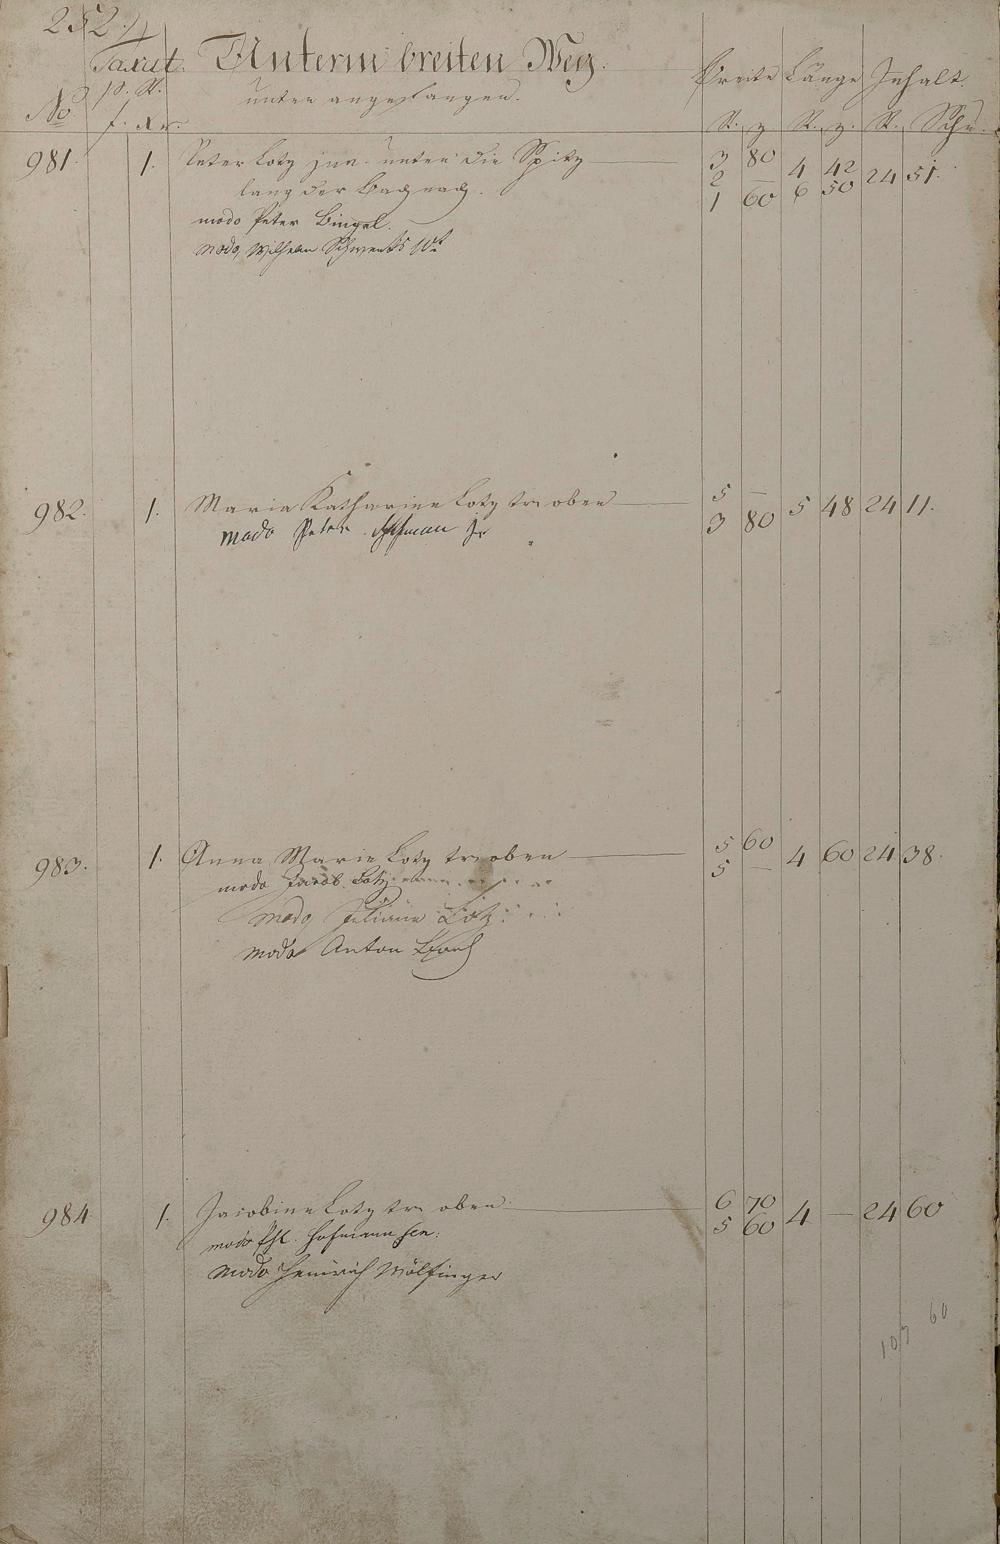 252.
Taxat. Unterm breiten Weg.
p. R. unten angefangen. Breite Länge Inhalt.
No f. xr. R. z R. z. R. Schu.
981. 1. Peter Lotz jun. unten die Spitz 3 80 4 42 24 51.
lang der 2 — 6 50
modo Peter Bingel. 1 60
modo, Wilhelm
982. 1. Maria Katharine Lotz tr. oben 5 — 5 48 24 11.
modo Peter Hofman Jr 3 80
983. 1. Anna Marie Lotz tr. oben 5 60 4 60 24 38.
modo Jacob Lotz 5 —
modo Juliane Lotz
modo Anton
984 1. Jacobine Lotz tr. oben 6 70 4 — 24 60
modo Phl. Hofmann sen: 5 60
modo Heinrich Wölfinger
107 60